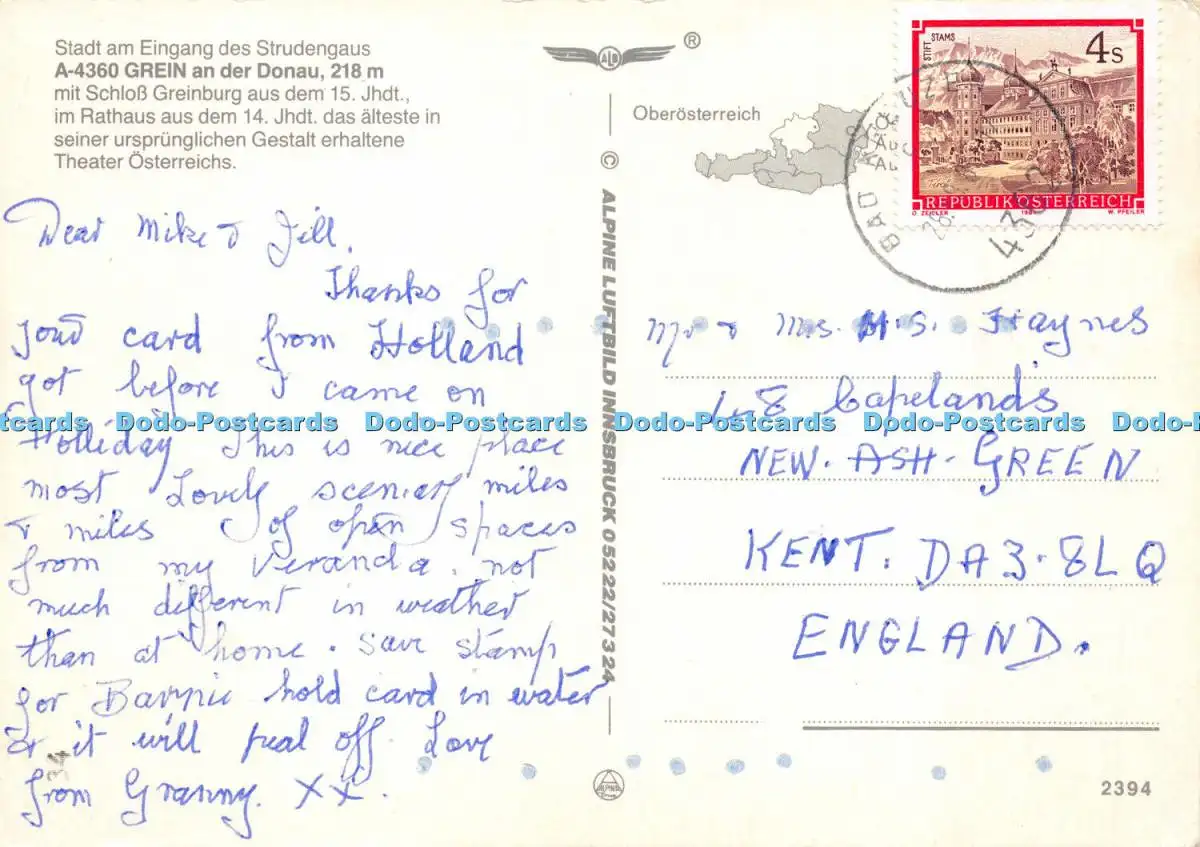 Stadt am Eingang des Strudengaus
A-4360 GREIN an der Donau, 218 m
mit Schloß Greinburg aus dem 15. Jhdt.,
im Rathaus aus dem 14. Jhdt. das älteste in
seiner ursprünglichen Gestalt erhaltene
Theater Österreichs.
Dear Mike & Jill,
Thanks for
your card from Holland
got before I came on
Holliday This is nice place
most Lovely scenery miles
& miles of open spaces
from my veranda. not
much different in weather
than at home. Save stamp
for hold card in water
& it will peal off. Love
from Granny. XX.
34
ALB
®
© ALPINE LUFTBILD INNSBRUCK 0 52 22/2 73 24
ALPINE
Oberösterreich
STIFT STAMS
4 S
Tirol
REPUBLIK ÖSTERREICH
O. ZEILER 1984 W. PFEILER
BAD KREUZEN
4362
Mr & Mrs. H.S. Haynes
Capelands
NEW-ASH-GREEN
KENT. DA3-8LQ
ENGLAND.
2394
Dodo-Postcards Dodo-Postcards Dodo-Postcards Dodo-Postcards Dodo-Postcards